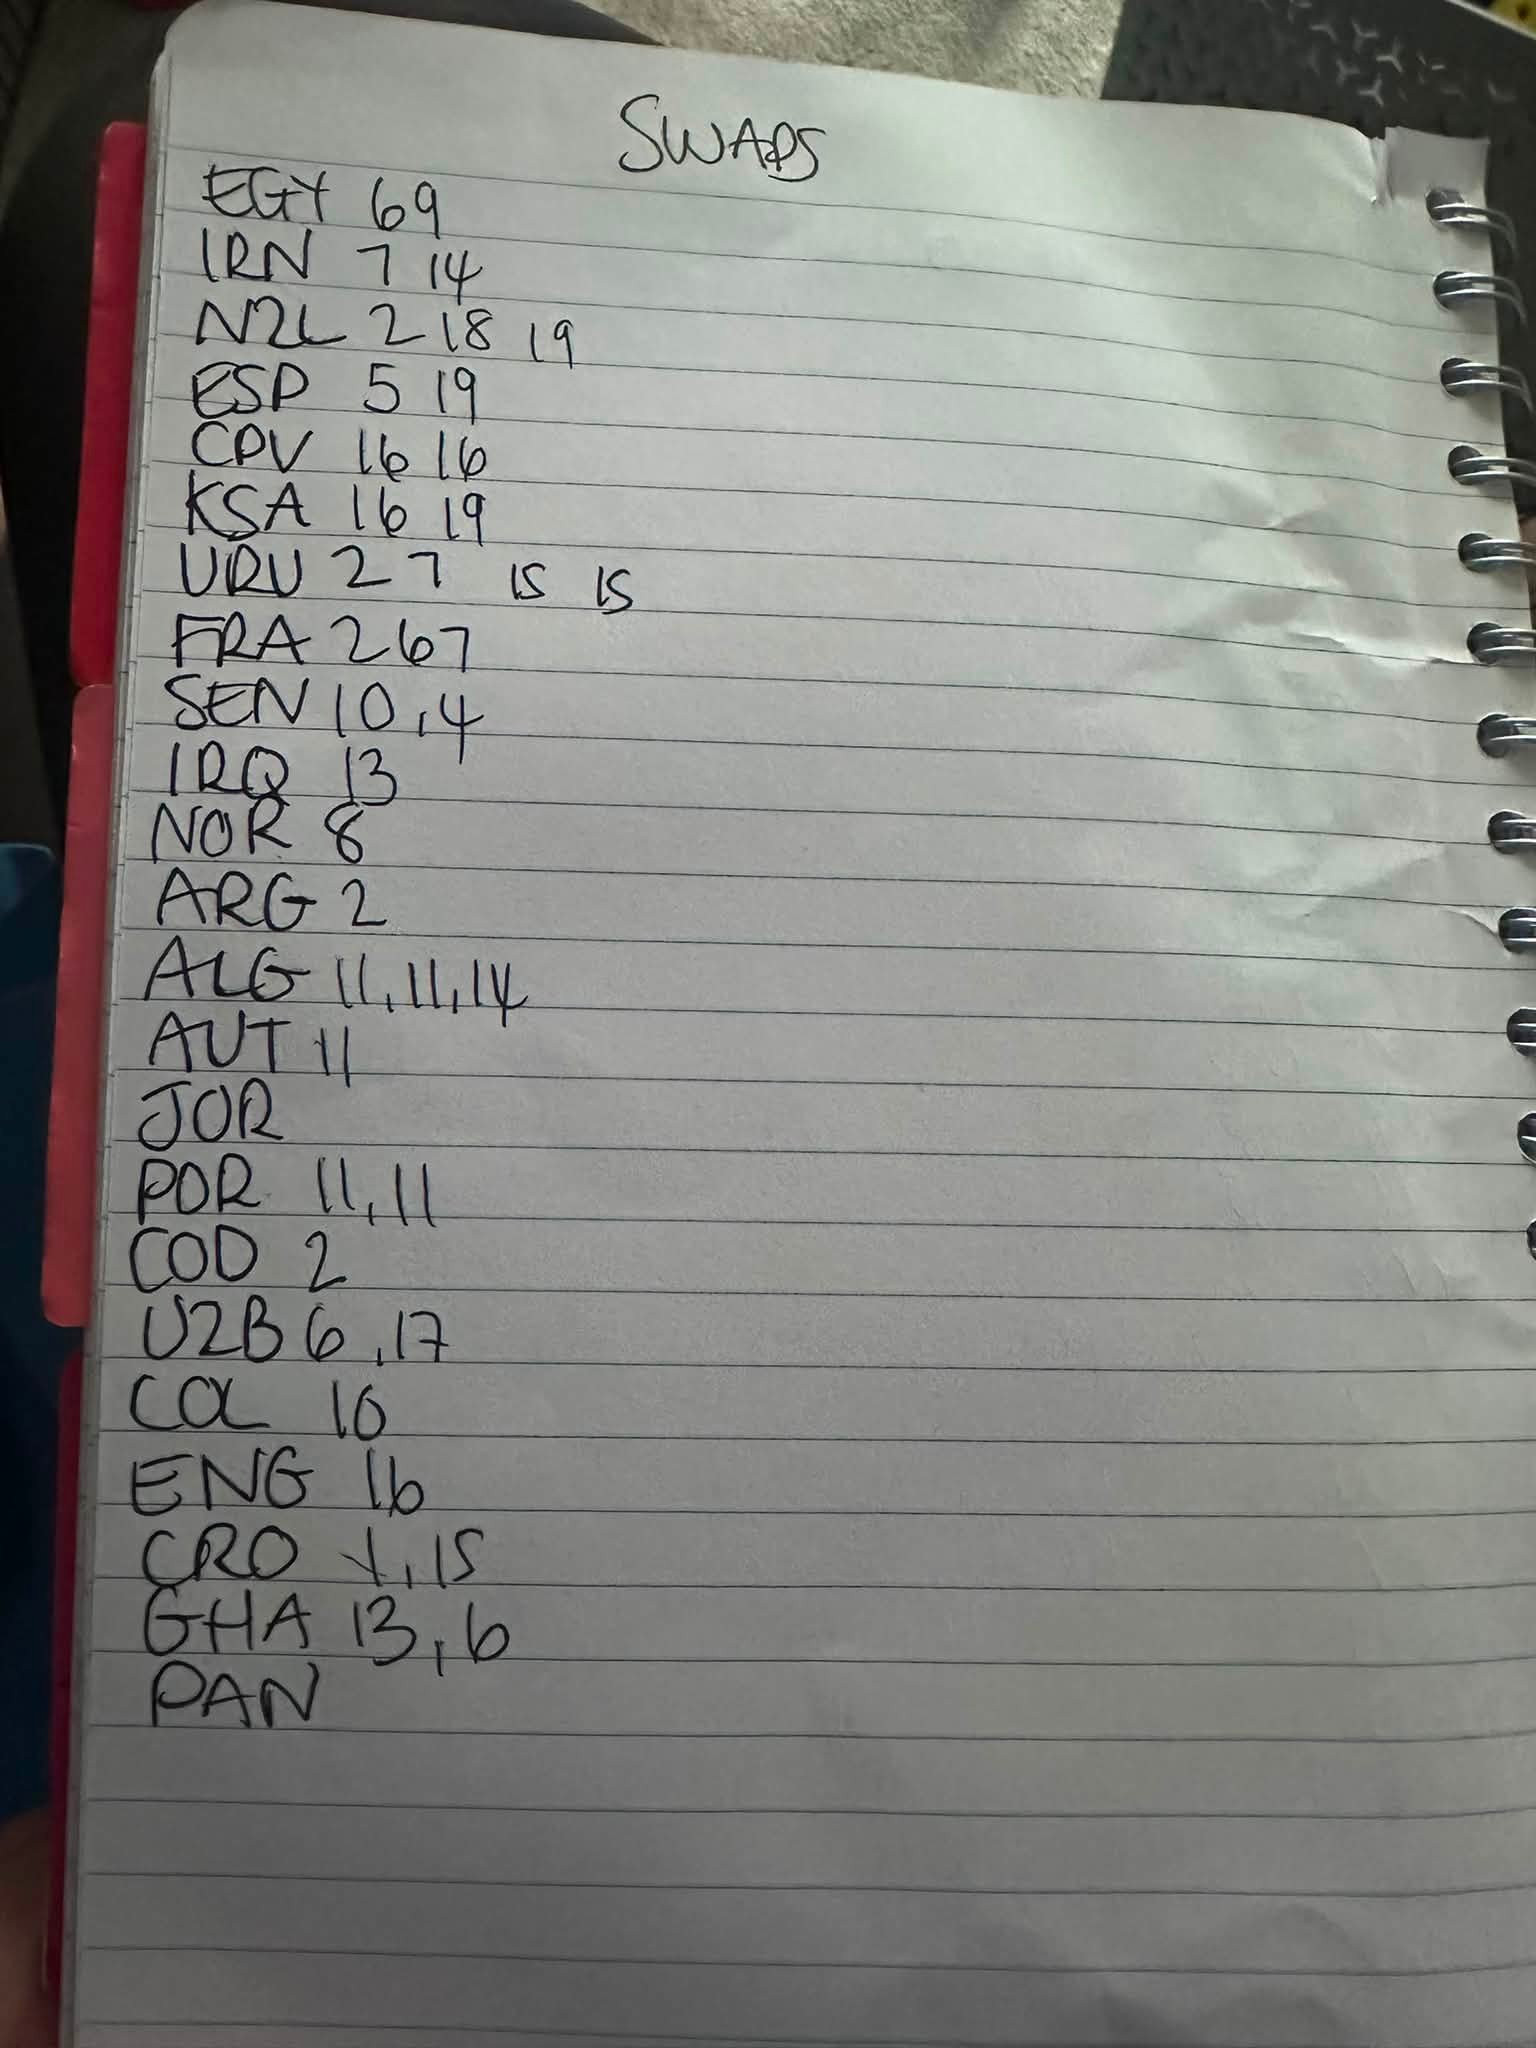 SWAPS
EGY 6 9
IRN 7 14
NZL 2 18 19
ESP 5 19
CPV 16 16
KSA 16 19
URU 2 7 15 15
FRA 2 6 7
SEN 10, 4
IRQ 13
NOR 8
ARG 2
ALG 11, 11, 14
AUT 11
JOR
POR 11, 11
COD 2
UZB 6, 17
COL 10
ENG 16
CRO 15
GHA 13, 6
PAN